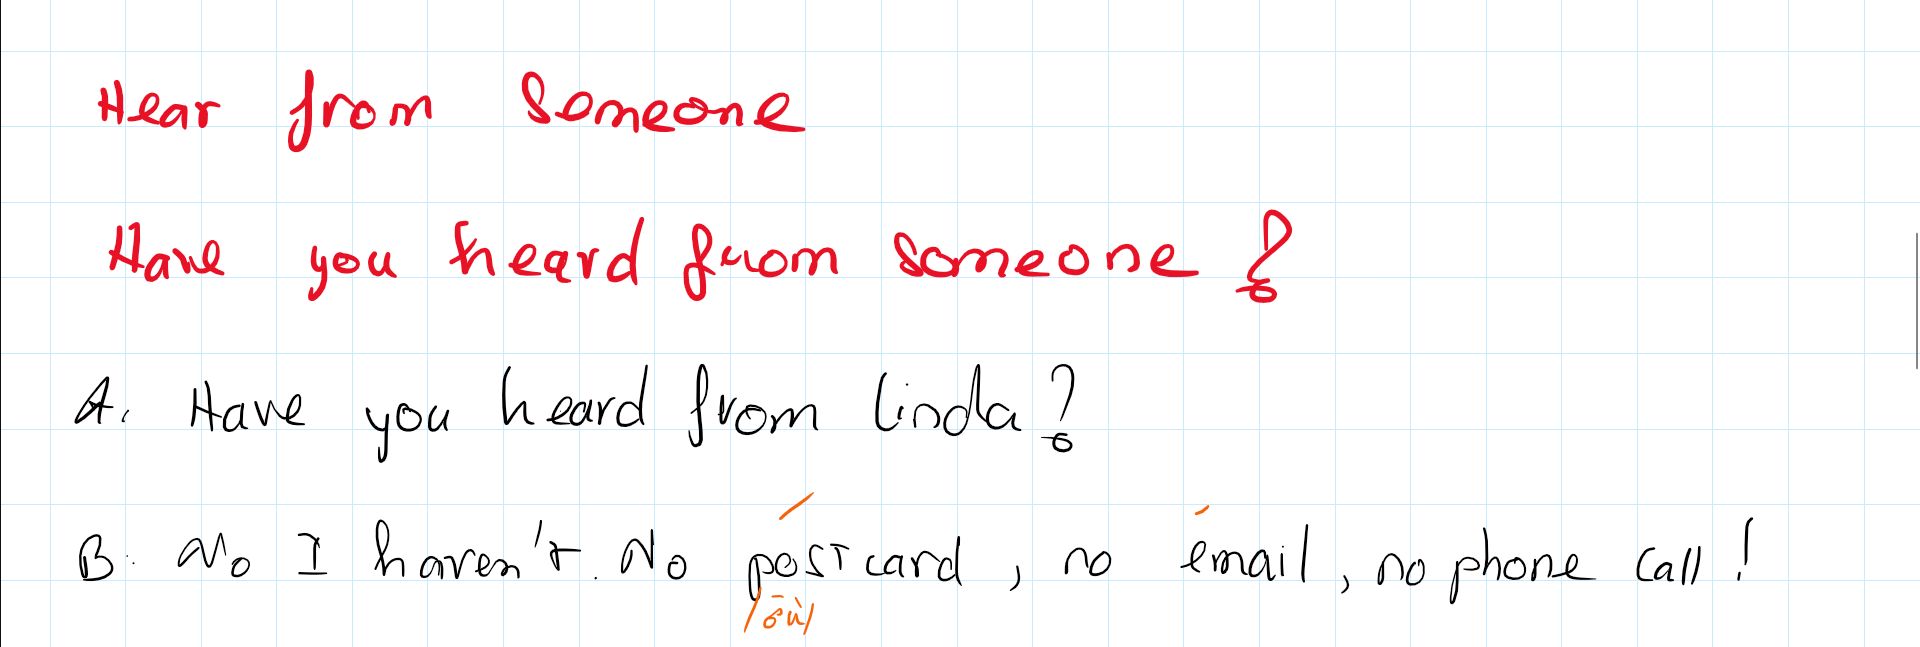 Hear from someone
Have you heard from someone ?
A. Have you heard from linda ?
B. No I haven't. No postcard, no email, no phone call !